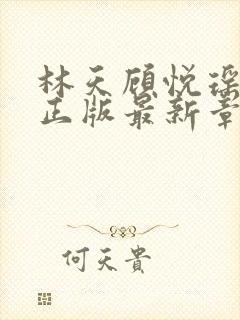 林天顾悦瑶
正版最新章
何天貴